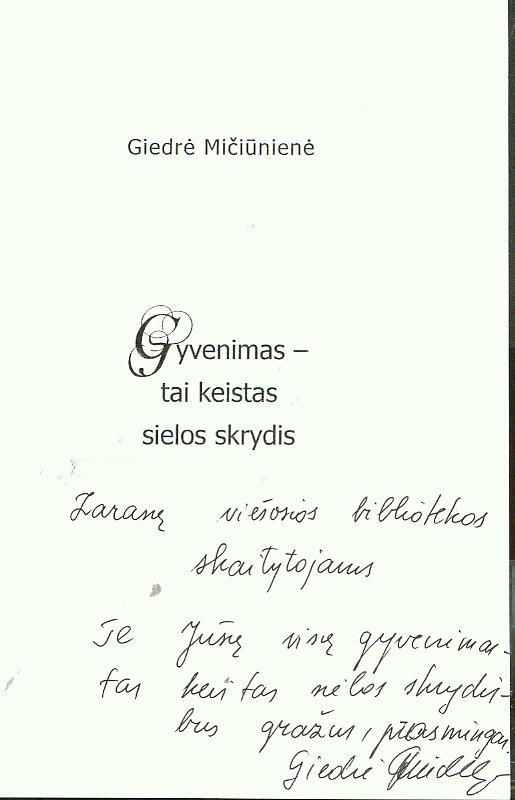 Giedrė Mičiūnienė
Gyvenimas –
tai keistas
sielos skrydis
Zarasų viešosios bibliotekos
skaitytojams
Te Jūsų visų gyvenimas -
tas keistas sielos skrydis -
bus gražus, prasmingas.
Giedrė